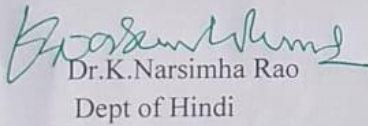 Dr.K.Narsimha Rao
Dept of Hindi